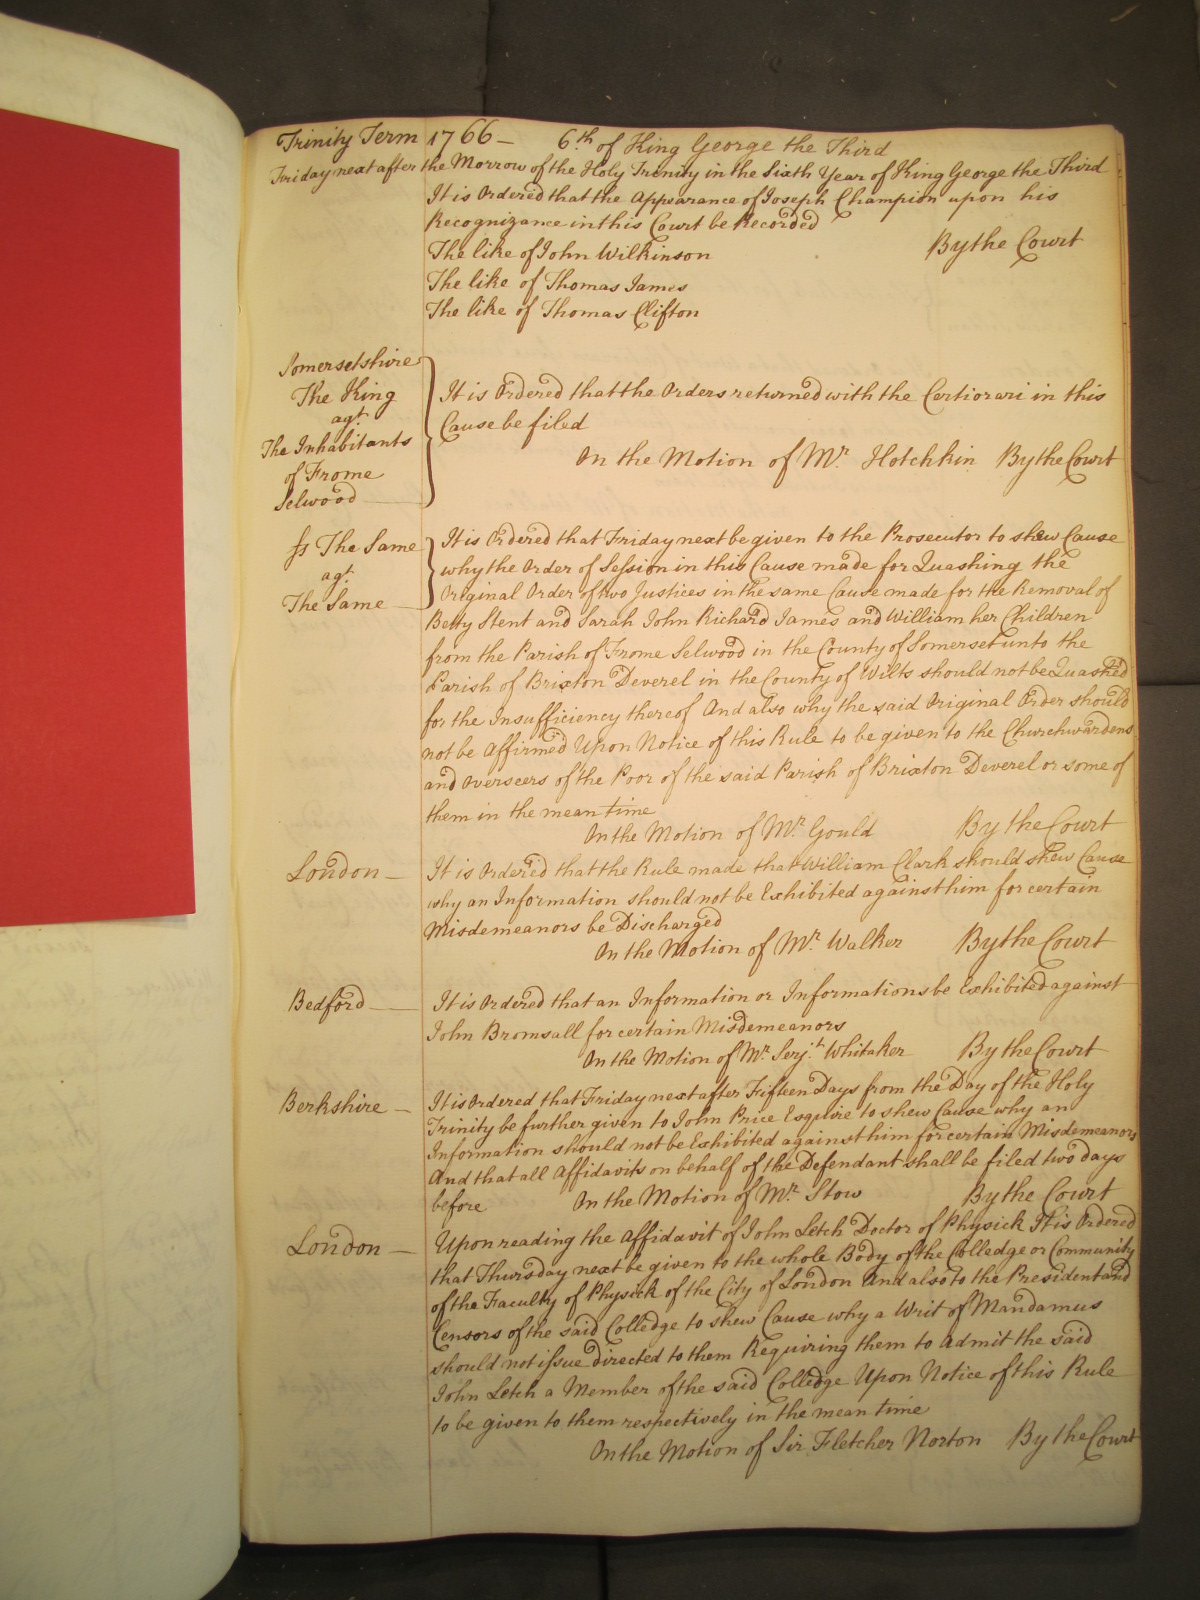 Trinity Term 1766 — 6th of King George the Third
Friday next after the Morrow of the Holy Trinity in the Sixth Year of King George the Third
It is Ordered that the Appearance of Joseph Champion upon his
Recognizance in this Court be Recorded
The like of John Wilkinson By the Court
The like of Thomas James
The like of Thomas Clifton
Somersetshire
The King
agt
The Inhabitants
of Frome
Selwood
It is Ordered that the Orders returned with the Certiorari in this
Cause be filed
On the Motion of Mr. Hotchkin By the Court
Ss The Same
agt
The Same
It is Ordered that Friday next be given to the Prosecutor to shew Cause
why the Order of Session in this Cause made for Quashing the
Original Order of two Justices in the same Cause made for the Removal of
Betty Stent and Sarah John Richard James and William her Children
from the Parish of Frome Selwood in the County of Somerset unto the
Parish of Brixton Deverel in the County of Wilts should not be Quashed
for the Insufficiency thereof And also why the said Original Order should
not be Affirmed Upon Notice of this Rule to be given to the Churchwardens
and Overseers of the Poor of the said Parish of Brixton Deverel or some of
them in the mean time
On the Motion of Mr. Gould By the Court
London —
It is Ordered that the Rule made that William Clark should shew Cause
why an Information should not be Exhibited against him for certain
Misdemeanors be Discharged
On the Motion of Mr. Walker By the Court
Bedford —
It is Ordered that an Information or Informations be Exhibited against
John Bromsall for certain Misdemeanors
On the Motion of Mr. Serjt. Whitaker By the Court
Berkshire —
It is Ordered that Friday next after Fifteen Days from the Day of the Holy
Trinity be further given to John Price Esquire to shew Cause why an
Information should not be Exhibited against him for certain Misdemeanors
And that all Affidavits on behalf of the Defendant shall be filed two days
before On the Motion of Mr. Stow By the Court
London —
Upon reading the Affidavit of John Letch Doctor of Physick It is Ordered
that Thursday next be given to the whole Body of the Colledge or Community
of the Faculty of Physick of the City of London And also to the President and
Censors of the said Colledge to shew Cause why a Writ of Mandamus
should not issue directed to them Requiring them to Admit the said
John Letch a Member of the said Colledge Upon Notice of this Rule
to be given to them respectively in the mean time
On the Motion of Sir Fletcher Norton By the Court